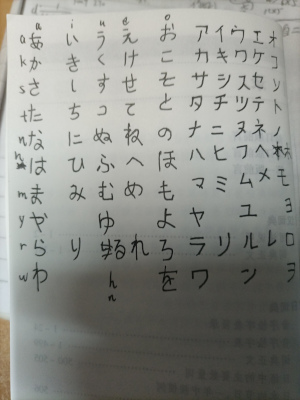 a i u e o
a あ い う え お ア イ ウ エ オ
k か き く け こ カ キ ク ケ コ
s さ し す せ そ サ シ ス セ ソ
t た ち つ て と タ チ ツ テ ト
n な に ぬ ね の ナ ニ ヌ ネ ノ
h は ひ ふ へ ほ ハ ヒ フ ヘ ホ
m ま み む め も マ ミ ム メ モ
y や ゆ よ ヤ ユ ヨ
r ら り る れ ろ ラ リ ル レ ロ
w わ ん を ワ ン ヲ
n